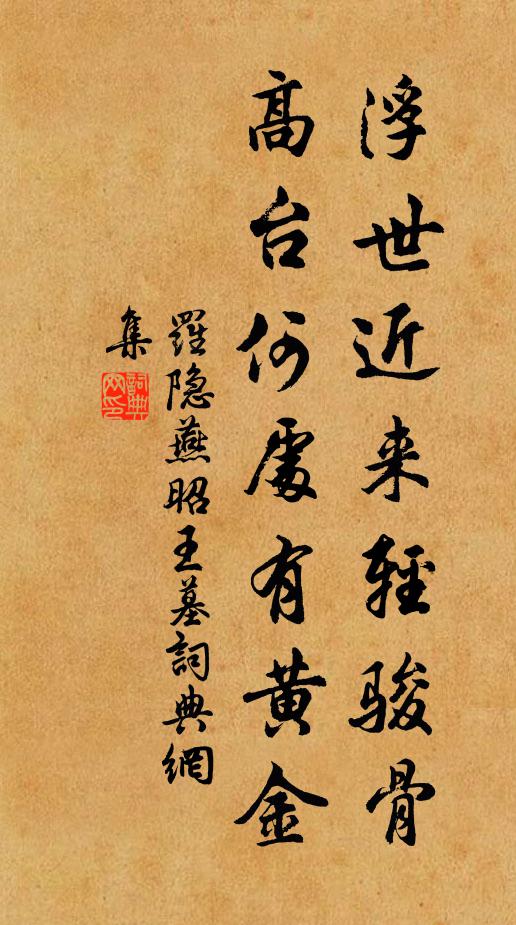 浮世近来輕骏骨
高台何處有黄金
羅隐燕昭王墓詞典網
集
詞典
网印